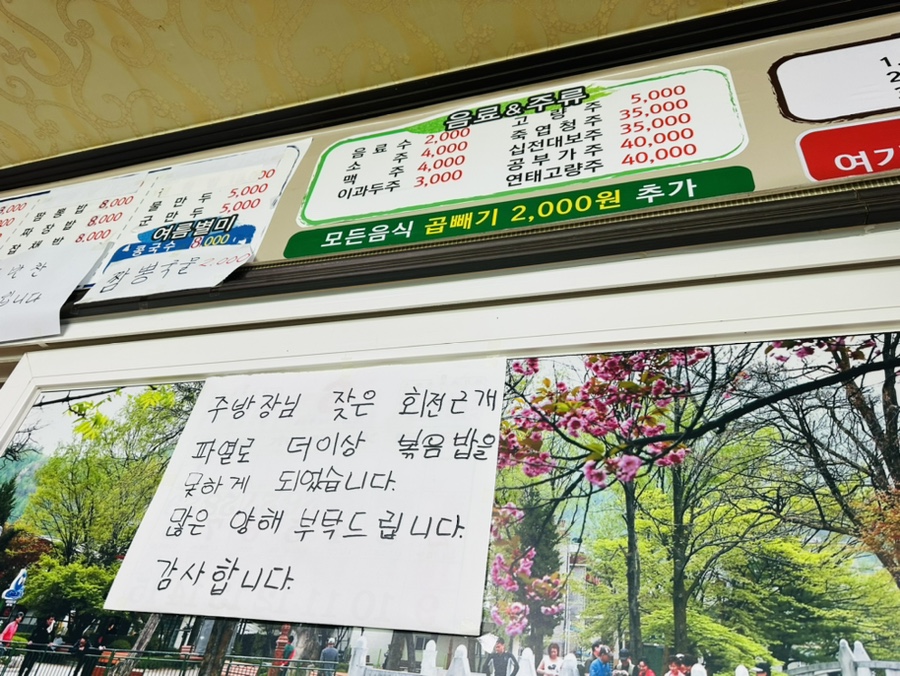 음료&주류
음료수 2,000
소주 4,000
맥주 4,000
이과두주 3,000
고량주 5,000
죽엽청주 35,000
십전대보주 35,000
공부가주 40,000
연태고량주 40,000
모든음식 곱빼기 2,000원 추가
짬뽕밥 8,000
짜장밥 8,000
잡채밥 8,000
물만두 5,000
군만두 5,000
여름별미
콩국수 8,000
짬뽕국물 2,000
주방장님 잦은 회전근개
파열로 더이상 볶음밥을
못하게 되었습니다.
많은 양해 부탁드립니다.
감사합니다.